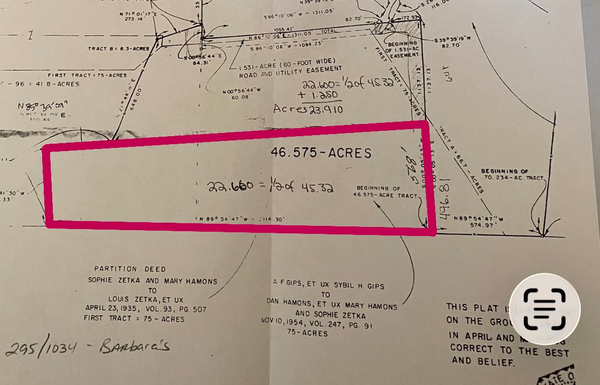 N 71° 01'
273.14'
S 86° 10' 06" W - 1311.05'
82.70'
172.93'
S 39° 39' 19" W
82.70'
1095.41'
N 86° 10' 06" E - 1311.05'
S 86° 10' 06" W - 1084.23'
1
TRACT B = 8.3-ACRES
84.31'
BEGINNING OF
1.531-AC
EASEMENT
1.531-ACRE (60-FOOT WIDE)
ROAD AND UTILITY EASEMENT
FIRST TRACT = 75-ACRES
N 00° 56' 44" W
60.08'
22.660 = 1/2 of 45.32
+ 1.250
Acres 23.910
- 96 = 41 8-ACRES
648.00'
1137.13'
TRACT A = 66.7 ACRES
46.575-ACRES
BEGINNING OF
70.234-AC. TRACT
22.660 = 1/2 of 45.32
BEGINNING OF
46.575-ACRE TRACT
446.81
N 89° 54' 47" W
574.97'
N 89° 54' 47" W - 2114.30'
PARTITION DEED
SOPHIE ZETKA AND MARY HAMONS
TO
LOUIS ZETKA, ET UX
APRIL 23, 1935, VOL. 93, PG. 507
FIRST TRACT = 75-ACRES
A F GIPS, ET UX SYBIL H. GIPS
TO
DAN HAMONS, ET UX MARY HAMONS
AND SOPHIE ZETKA
NOV 10, 1954, VOL. 247, PG. 91
75-ACRES
THIS PLAT
ON THE GRO
IN APRIL AND
CORRECT TO THE BEST
AND BELIEF.
295/1034 - Barbara's